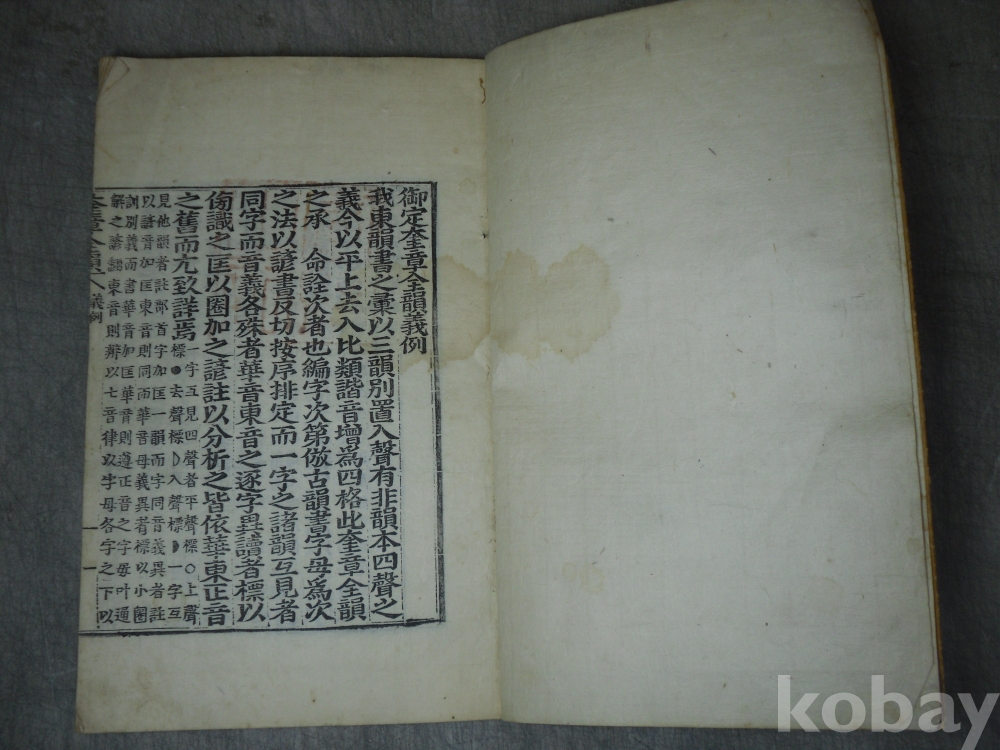 御定奎章全韻義例
我東韻書之彙以三韻別置入聲有非韻本四聲之
義今以平上去入比類諧音增爲四格此奎章全韻
之承 命詮次者也編字次第倣古韻書字母爲次
之法以諺書反切按序排定而一字之諸韻互見者
同字而音義各殊者華音東音之逐字異讀者標以
傍識之匡以圈加之諺註以分析之皆依華東正音
之舊而尤致詳焉
一字五見四聲者平聲標○上聲
標●去聲標☽入聲標◗一字互
見他韻者註鄰首字加匡一韻而字同音義異者註
以諺音加匡東音則同而華音母義異者標以小圈
訓別義而書華音加匡華音則遵正音之字母叶通
解之諺翻東音則辨以七音律以字母各字之下以
奎章全韻 義例 一
kobay